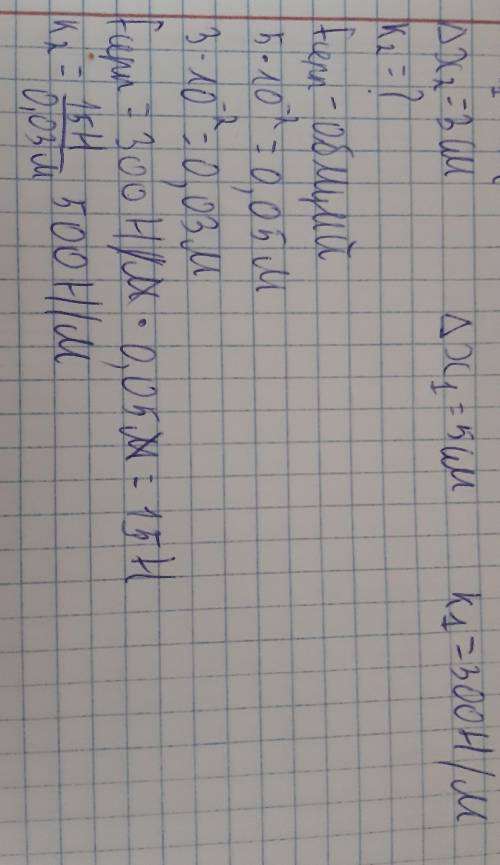 Δx₂ = 3 см Δx₁ = 5 см k₁ = 300 Н/м
k₂ = ?
Fупр - общий
5 · 10⁻² = 0,05 м
3 · 10⁻² = 0,03 м
Fупр = 300 Н/м · 0,05м = 15 Н
k₂ = 15Н/0,03м 500 Н/м